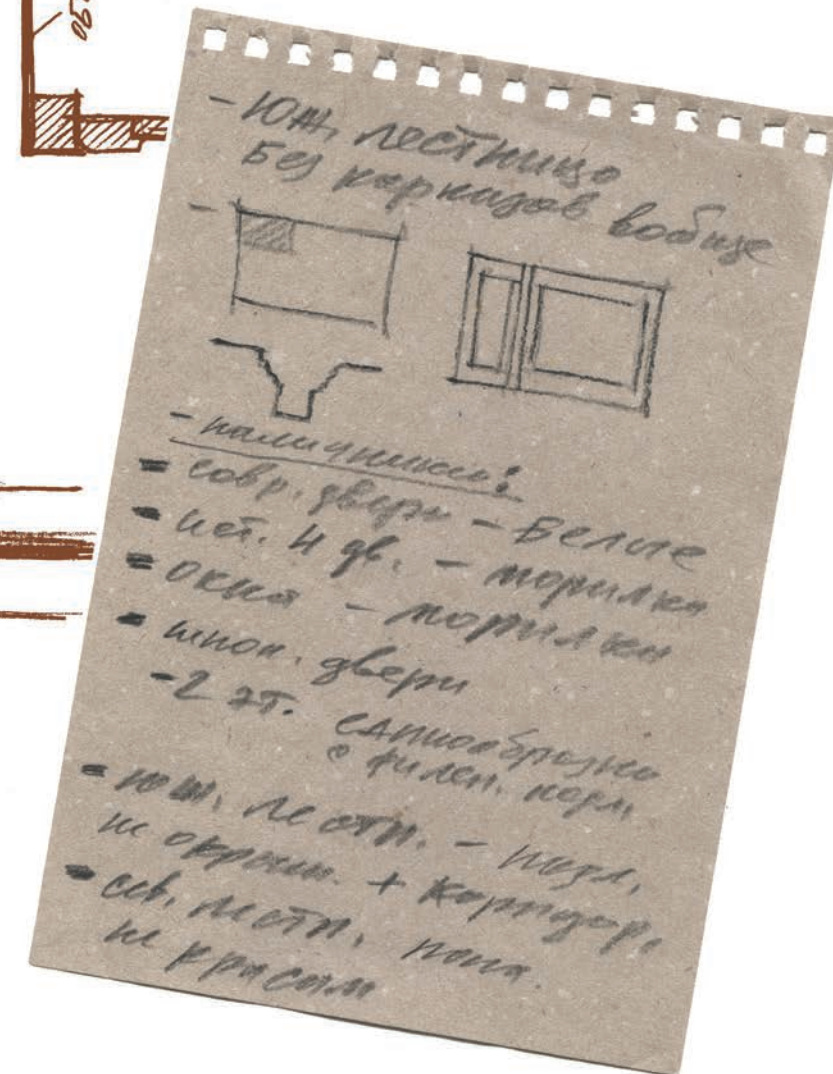 об
- Юж. лестница
без карнизов вообще
-
- наличники:
- совр. двери - белые
- ист. 4 дв. - морилка
- окна - морилка
- шпон. двери
- 2 эт. единообразно
с филен. 
- юж. лестн. -
не окраш. + коридор.
- сев. лестн.
не красим